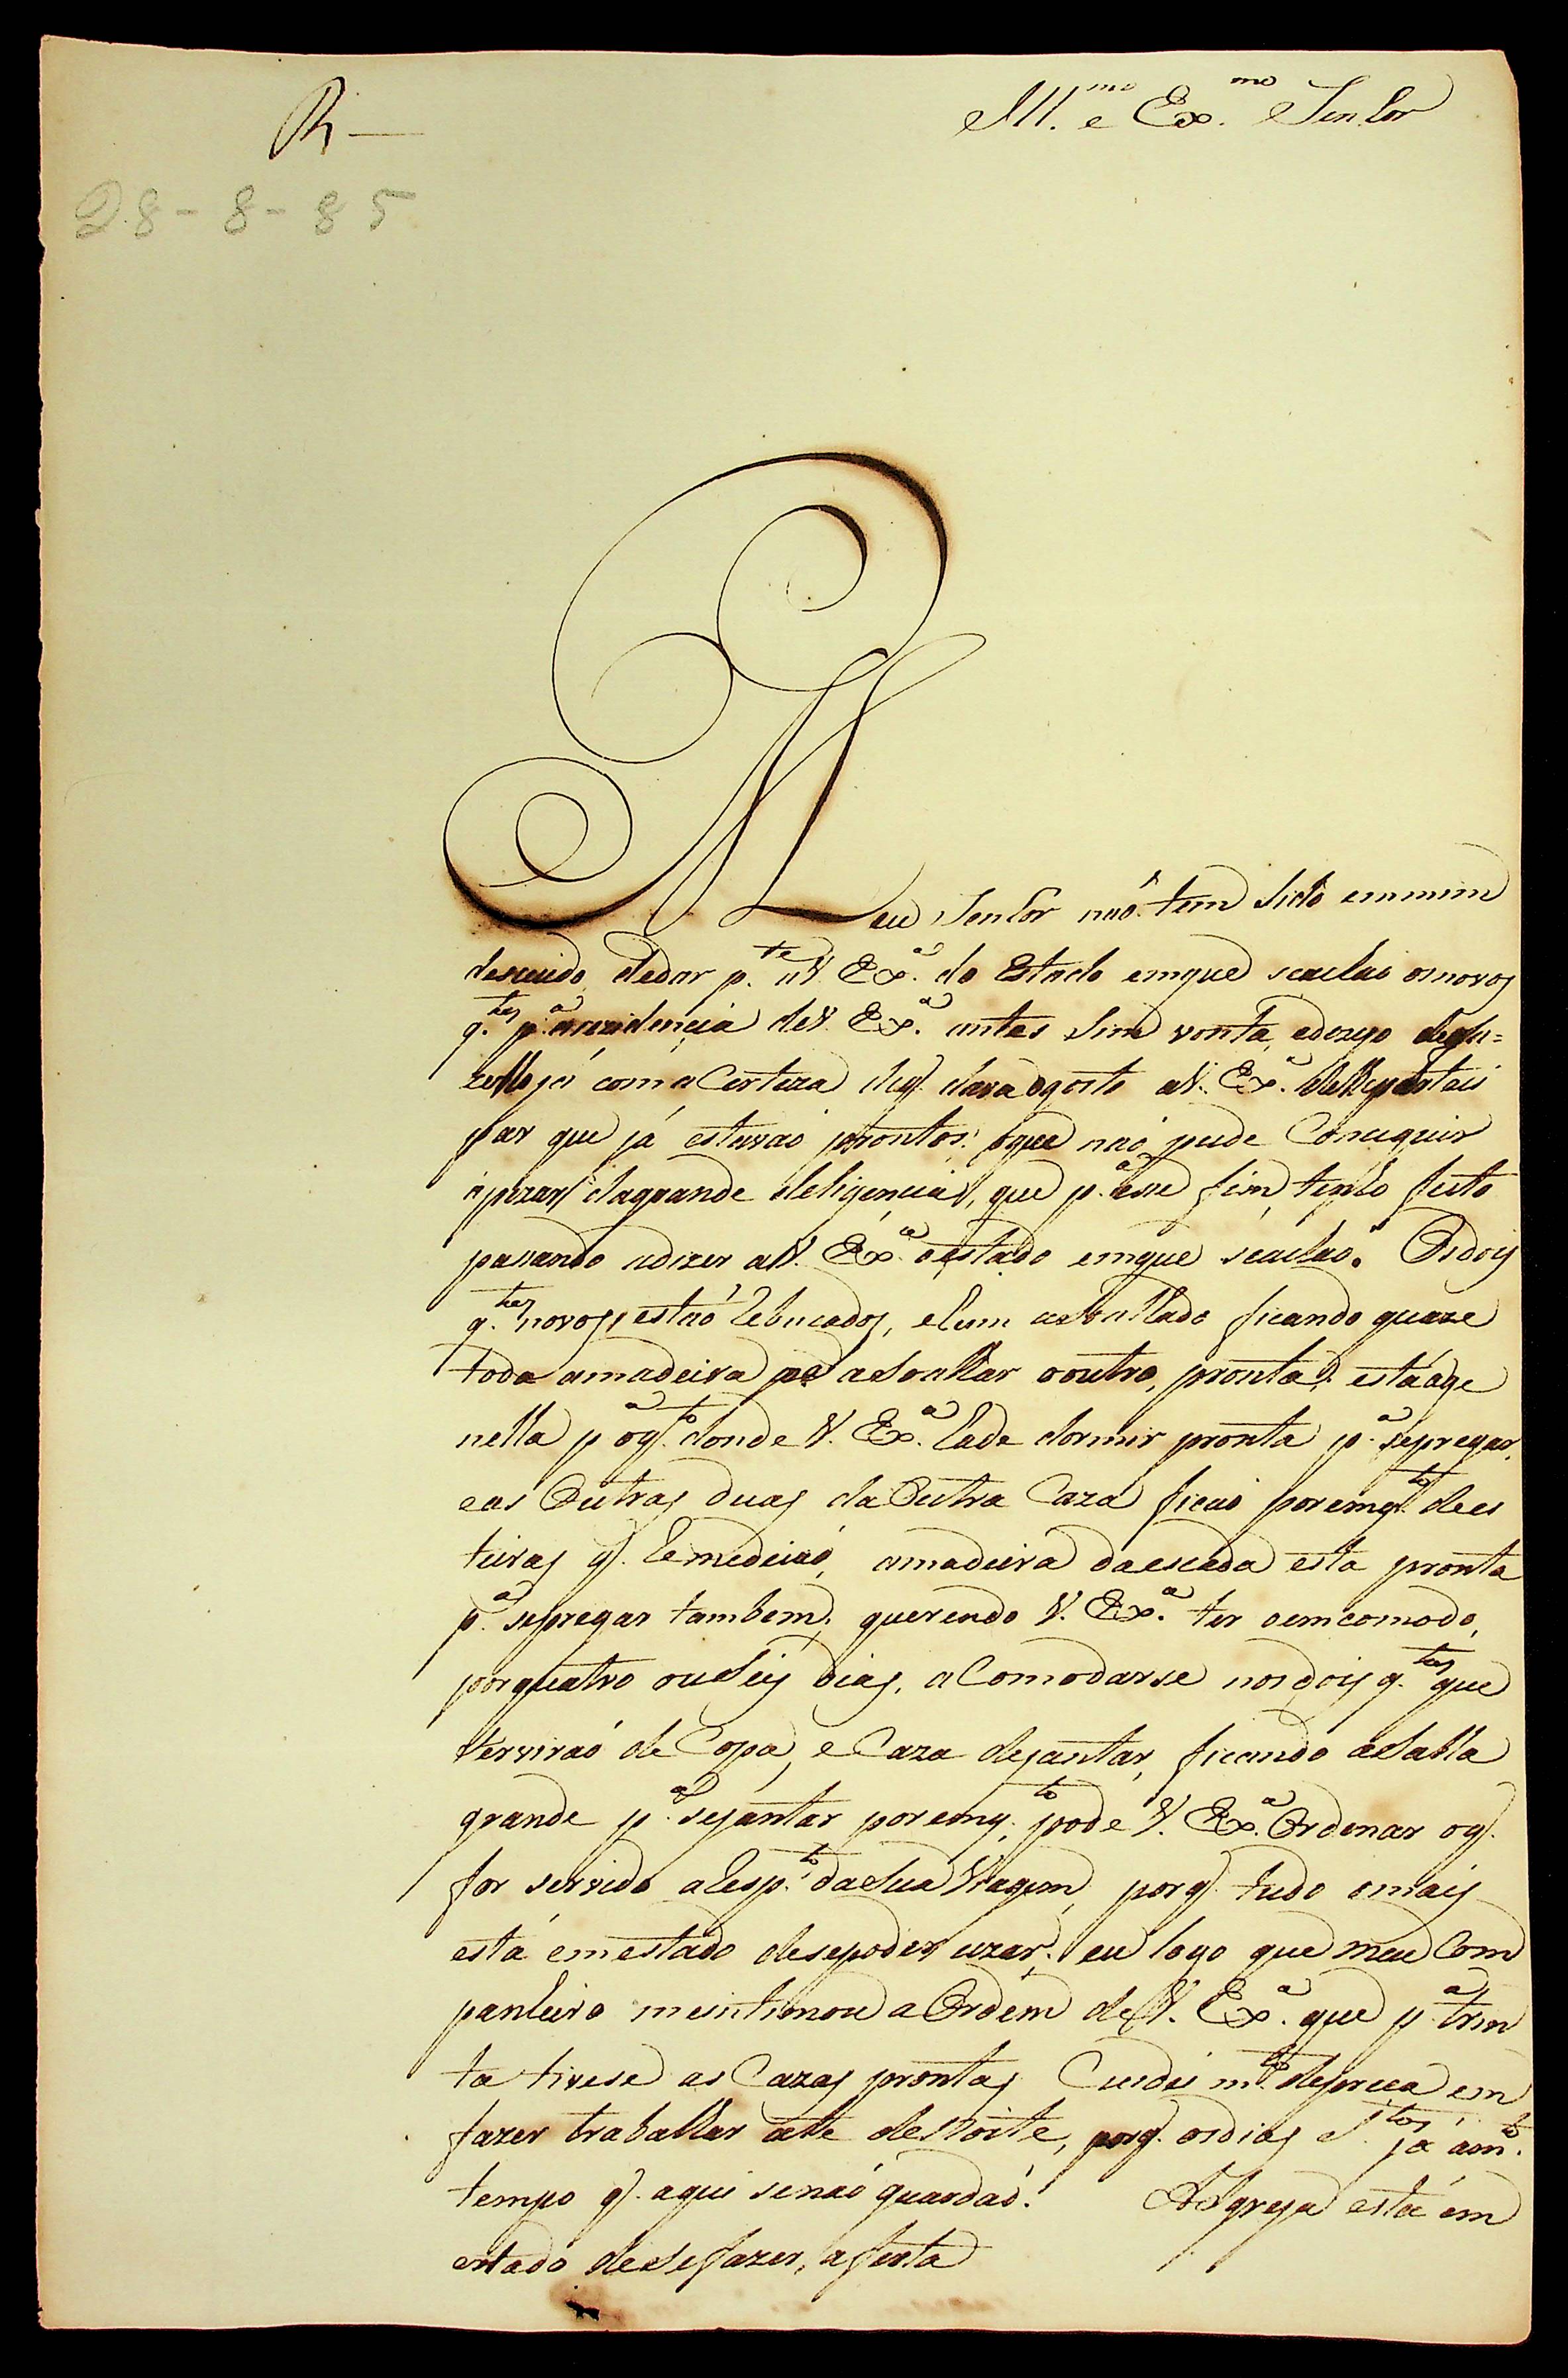 R—
Ill.mo e Ex.mo Senhor
28-8-85
Meu Senhor naõ tem sido emmim
descuido dedar p.te aV. Ex.a do Estado emque seachaõ osnovos
q.tos p.a arezidencia deV. Ex.a antes sim vonta, edezejo de
já comaCerteza deq. dava ogosto aV. Ex.a
par que já estavaõ prontos: oque naõ pude Conceguir
apezar dagrande deligencia, que p.a esse fim, tenho feito
passando adizer aV. Ex.a oestado emque seachaõ. Osdois
q.tos novos, estaõ Rebucados, ehum asoalhado ficando quaze
toda amadeira p.a asoalhar ooutro, pronta, está age
nella p.a oq.to donde V. Ex.a hade dormir pronta p.a sepregar,
eas Outras duas daOutra Caza ficaõ poremq.to dees
teiras q. Remedeiaõ, amadeira daescada esta pronta
p.a sepregar tambem, querendo V. Ex.a ter oemcomodo,
porquatro ouSeis dias, aComodarse nosdois q.tos que
Serviraõ de Copa, e Caza dejantar, ficando aSalla
grande p.a sejantar poremq.to pode V. Ex.a Ordenar oq.
for servido aResp.to daSua Viagem, porq. tudo omais
está emestado desepoder uzar; eu logo que meu Com
panheiro meintimou aOrdem deV. Ex.a que p.a trin
ta tivese as Cazas prontas Cuidei m.to depreça em
fazer trabalhar athe deNoite, porq. osdias S.tos já am.to
tempo q. aqui senaõ guardaõ. AIgreja está em
estado deSefazer, afesta